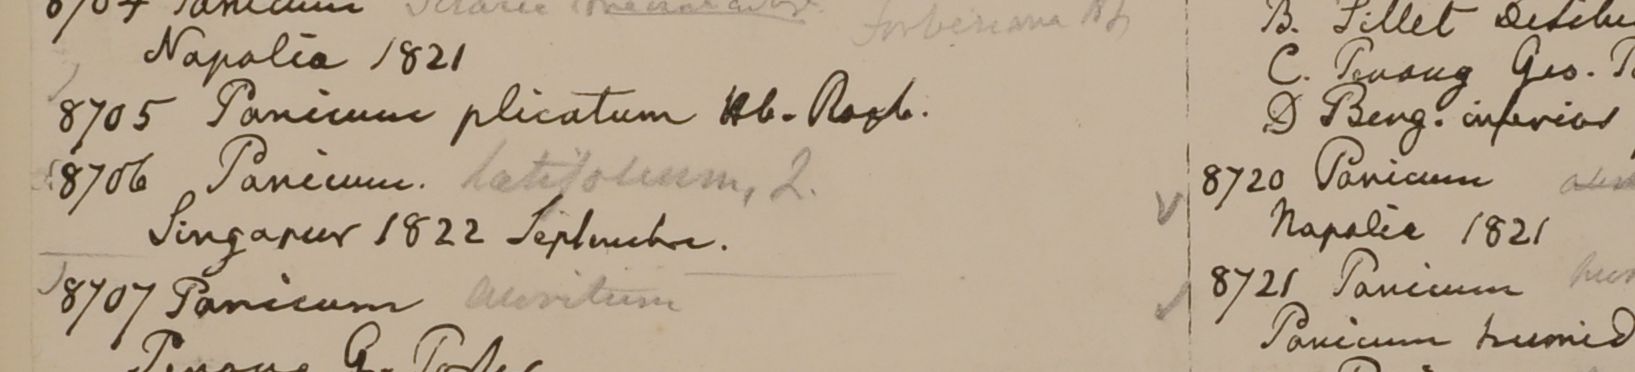 8704 Panicum Setaria
Napalia 1821
8705 Panicum plicatum Hb. Roxb.
8706 Panicum. latifolium, L.
Singapur 1822 Septembre.
8707 Panicum auritum
Penang G. Porter
B. Sillet
C. Penang Geo.
D Beng. inferior
8720 Panicum
Napalia 1821
8721 Panicum
Panicum humid